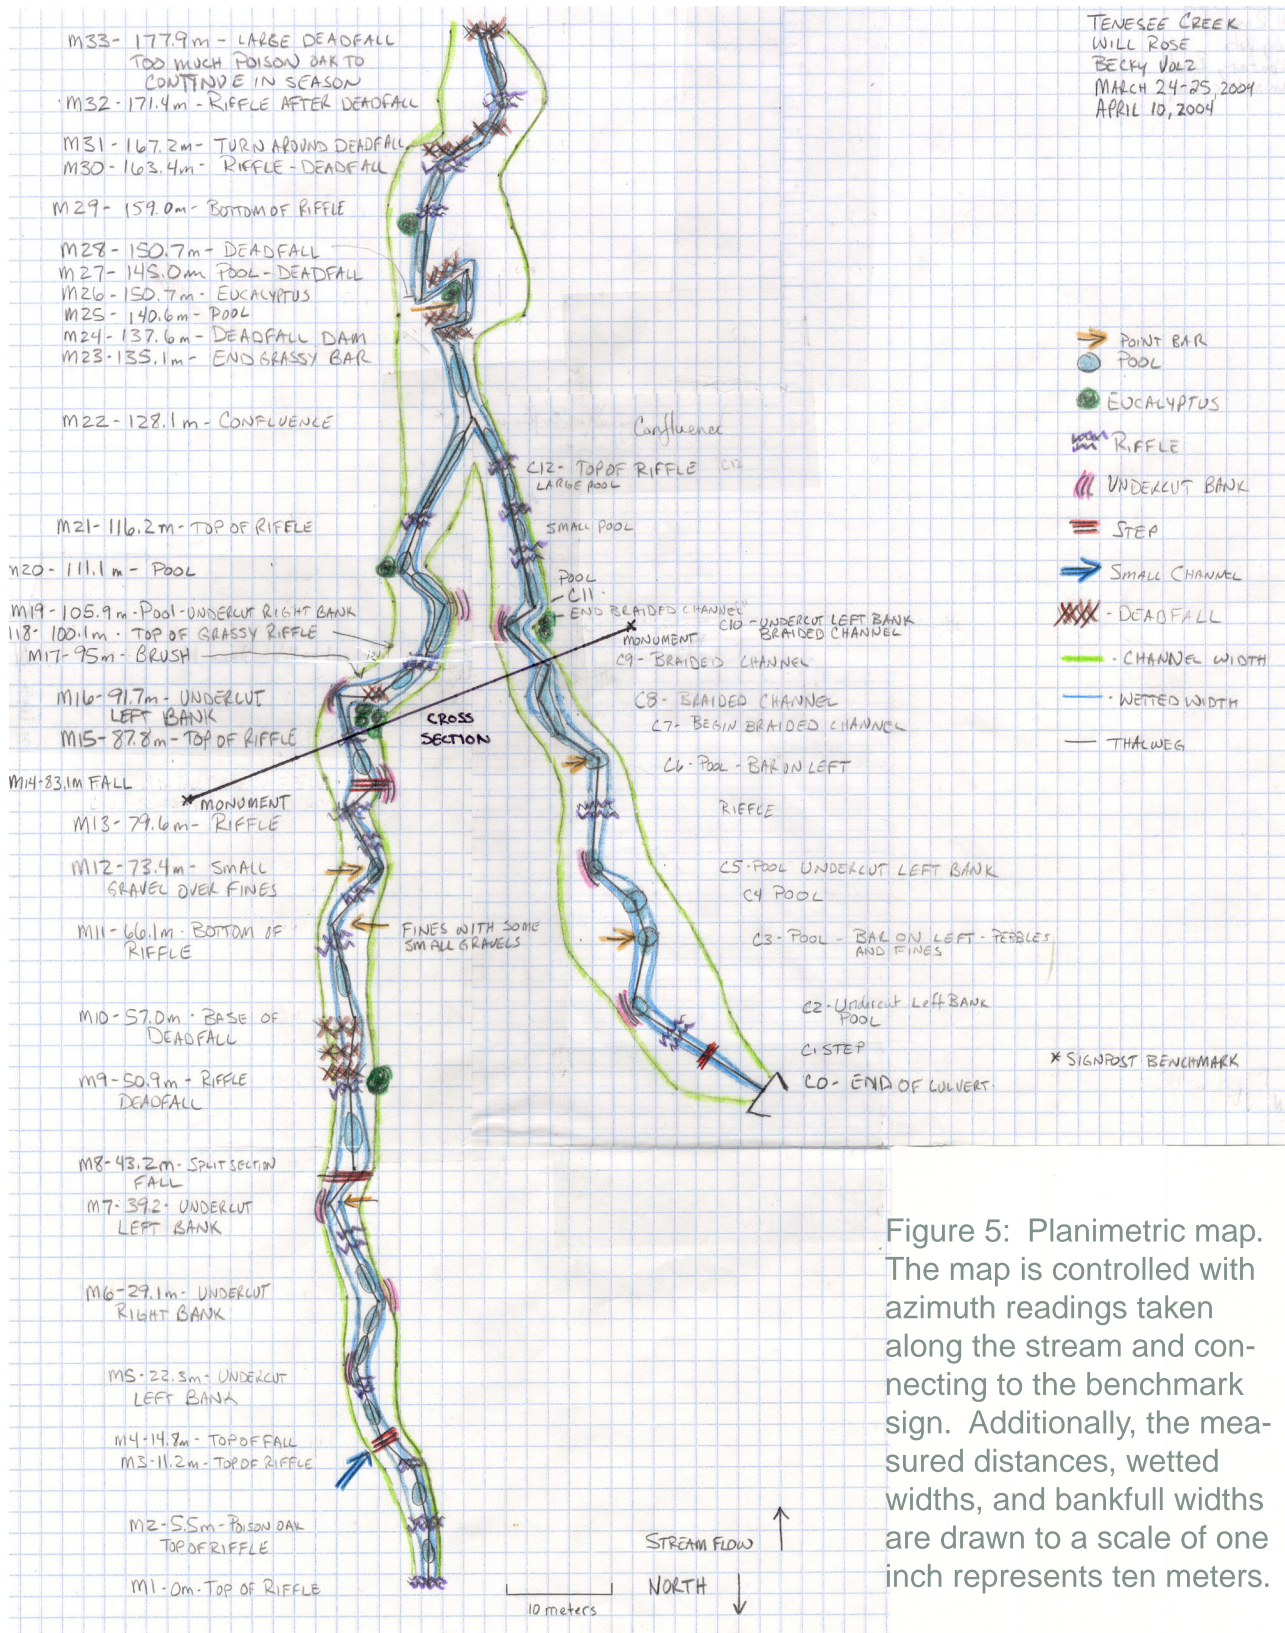 TENESEE CREEK
WILL ROSE
BECKY VOLZ
MARCH 24-25, 2004
APRIL 10, 2004
M33- 177.9m - LARGE DEADFALL
TOO MUCH POISON OAK TO
CONTINUE IN SEASON
M32-171.4m-RIFFLE AFTER DEADFALL
M31-167.2m-TURN AROUND DEADFALL
M30-163.4m- RIFFLE-DEADFALL
M29- 159.0m- BOTTOM OF RIFFLE
M28-150.7m-DEADFALL
M27-145.0m POOL-DEADFALL
M26-150.7m- EUCALYPTUS
M25-140.6m-POOL
M24-137.6m-DEADFALL DAM
M23-135.1m-END GRASSY BAR
M22-128.1m-CONFLUENCE
M21-116.2m-TOP OF RIFFLE
M20-111.1m-POOL
M19-105.9m-POOL-UNDERCUT RIGHT BANK
118-100.1m-TOP OF GRASSY RIFFLE
M17-95m-BRUSH
M16-91.7m-UNDERCUT
LEFT BANK
M15-87.8m-TOP OF RIFFLE
M14-83.1m FALL
MONUMENT
M13-79.6m- RIFFLE
M12-73.4m-SMALL
GRAVEL OVER FINES
M11-66.1m-BOTTOM OF
RIFFLE
FINES WITH SOME
SMALL GRAVELS
M10-57.0m-BASE OF
DEADFALL
M9-50.9m-RIFFLE
DEADFALL
M8-43.2m-SPLIT SECTION
FALL
M7-39.2-UNDERCUT
LEFT BANK
M6-29.1m-UNDERCUT
RIGHT BANK
M5-22.3m-UNDERCUT
LEFT BANK
M4-14.8m-TOP OF FALL
M3-11.2m-TOP OF RIFFLE
M2-5.5m-POISON OAK
TOP OF RIFFLE
M1-0m-TOP OF RIFFLE
Confluence
C12-TOP OF RIFFLE C12
LARGE POOL
SMALL POOL
POOL
C11-
END BRAIDED CHANNEL
C10-UNDERCUT LEFT BANK
BRAIDED CHANNEL
MONUMENT
C9-BRAIDED CHANNEL
C8-BRAIDED CHANNEL
C7-BEGIN BRAIDED CHANNEL
CROSS
SECTION
C6-POOL-BAR ON LEFT
RIFFLE
C5-POOL UNDERCUT LEFT BANK
C4 POOL
C3-POOL - BAR ON LEFT-PEBBLES
AND FINES
C2-Undercut Left BANK
POOL
C1 STEP
C0- END OF CULVERT
POINT BAR
POOL
EUCALYPTUS
RIFFLE
UNDERCUT BANK
STEP
SMALL CHANNEL
-DEADFALL
-CHANNEL WIDTH
-WETTED WIDTH
-THALWEG
* SIGNPOST BENCHMARK
STREAM FLOW
NORTH
10 meters
Figure 5: Planimetric map.
The map is controlled with
azimuth readings taken
along the stream and con-
necting to the benchmark
sign. Additionally, the mea-
sured distances, wetted
widths, and bankfull widths
are drawn to a scale of one
inch represents ten meters.